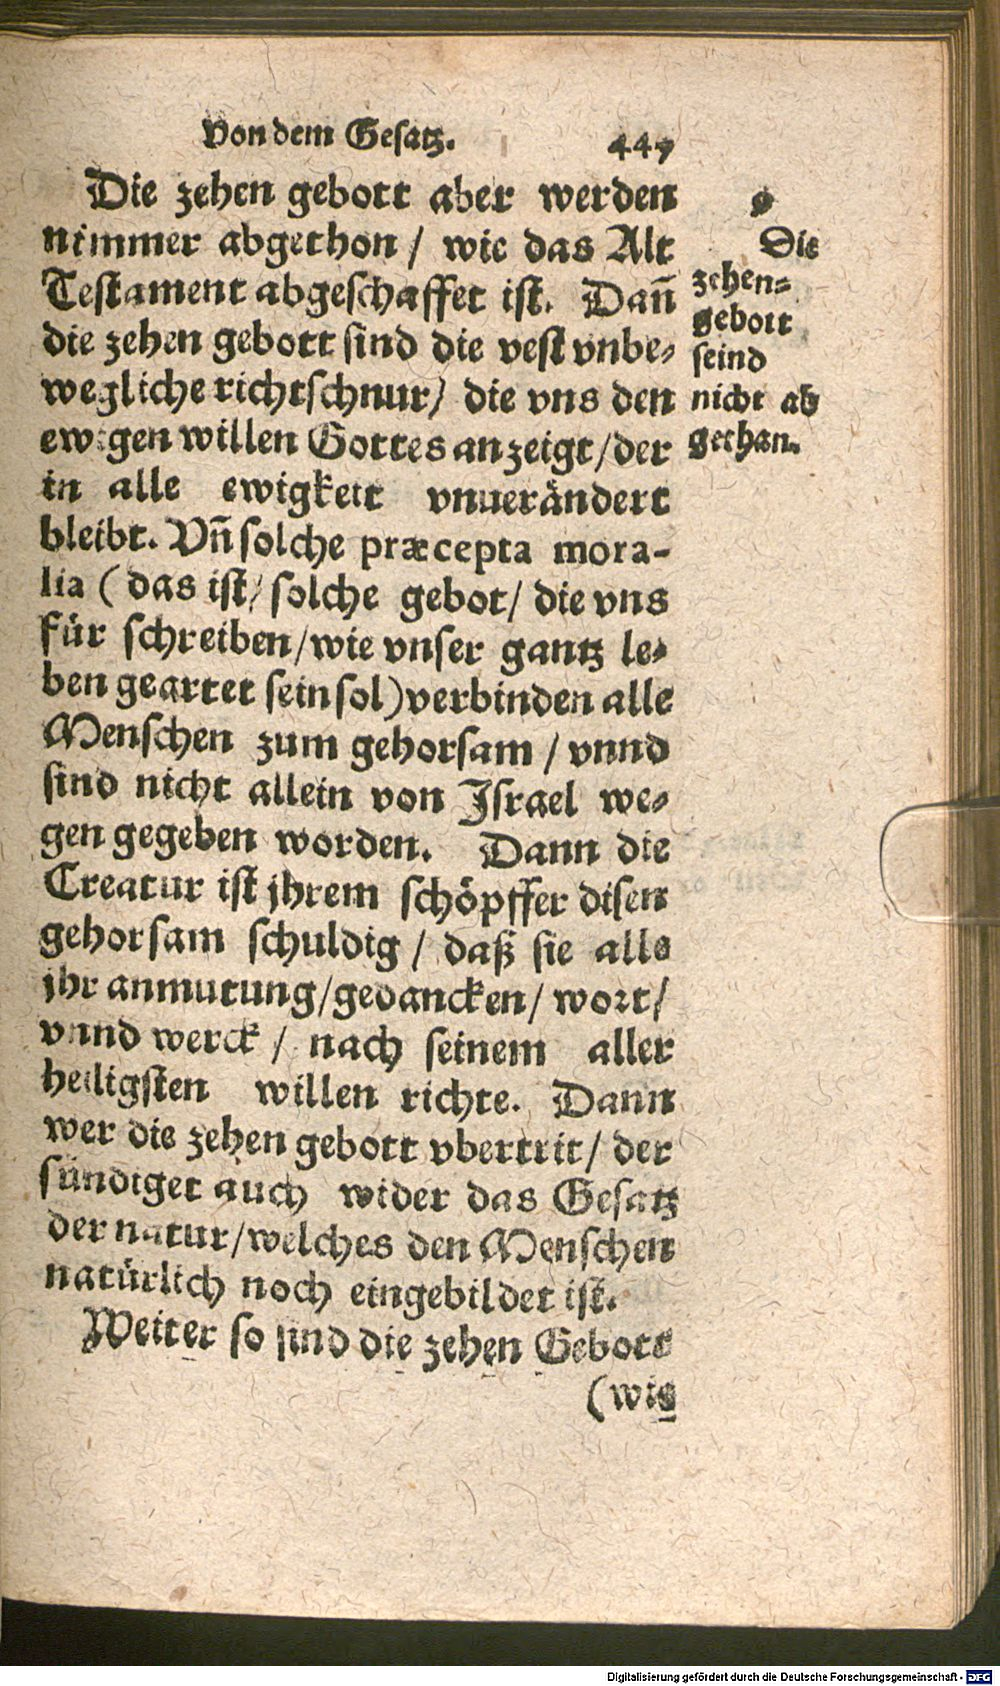 Von dem Gesatz. 447
Die zehen gebott aber werden
nimmer abgethon / wie das Alt
Testament abgeschaffet ist. Dañ
die zehen gebott sind die vest vnbe-
wegliche richtschnur / die vns den
ewigen willen Gottes anzeigt / der
in alle ewigkeit vnuerändert
bleibt. Vñ solche præcepta mora-
lia ( das ist / solche gebot / die vns
für schreiben / wie vnser gantz le-
ben geartet sein sol ) verbinden alle
Menschen zum gehorsam / vnnd
sind nicht allein von Israel we-
gen gegeben worden. Dann die
Creatur ist jhrem schöpffer disen
gehorsam schuldig / daß sie alle
jhr anmutung / gedancken / wort /
vnnd werck / nach seinem aller
heiligsten willen richte. Dann
wer die zehen gebott vbertrit / der
sündiget auch wider das Gesatz
der natur / welches den Menschen
natürlich noch eingebildet ist.
Weiter so sind die zehen Gebott
(wie
9
Die
zehen-
gebott
seind
nicht ab
gethan.
Digitalisierung gefördert durch die Deutsche Forschungsgemeinschaft - DFG